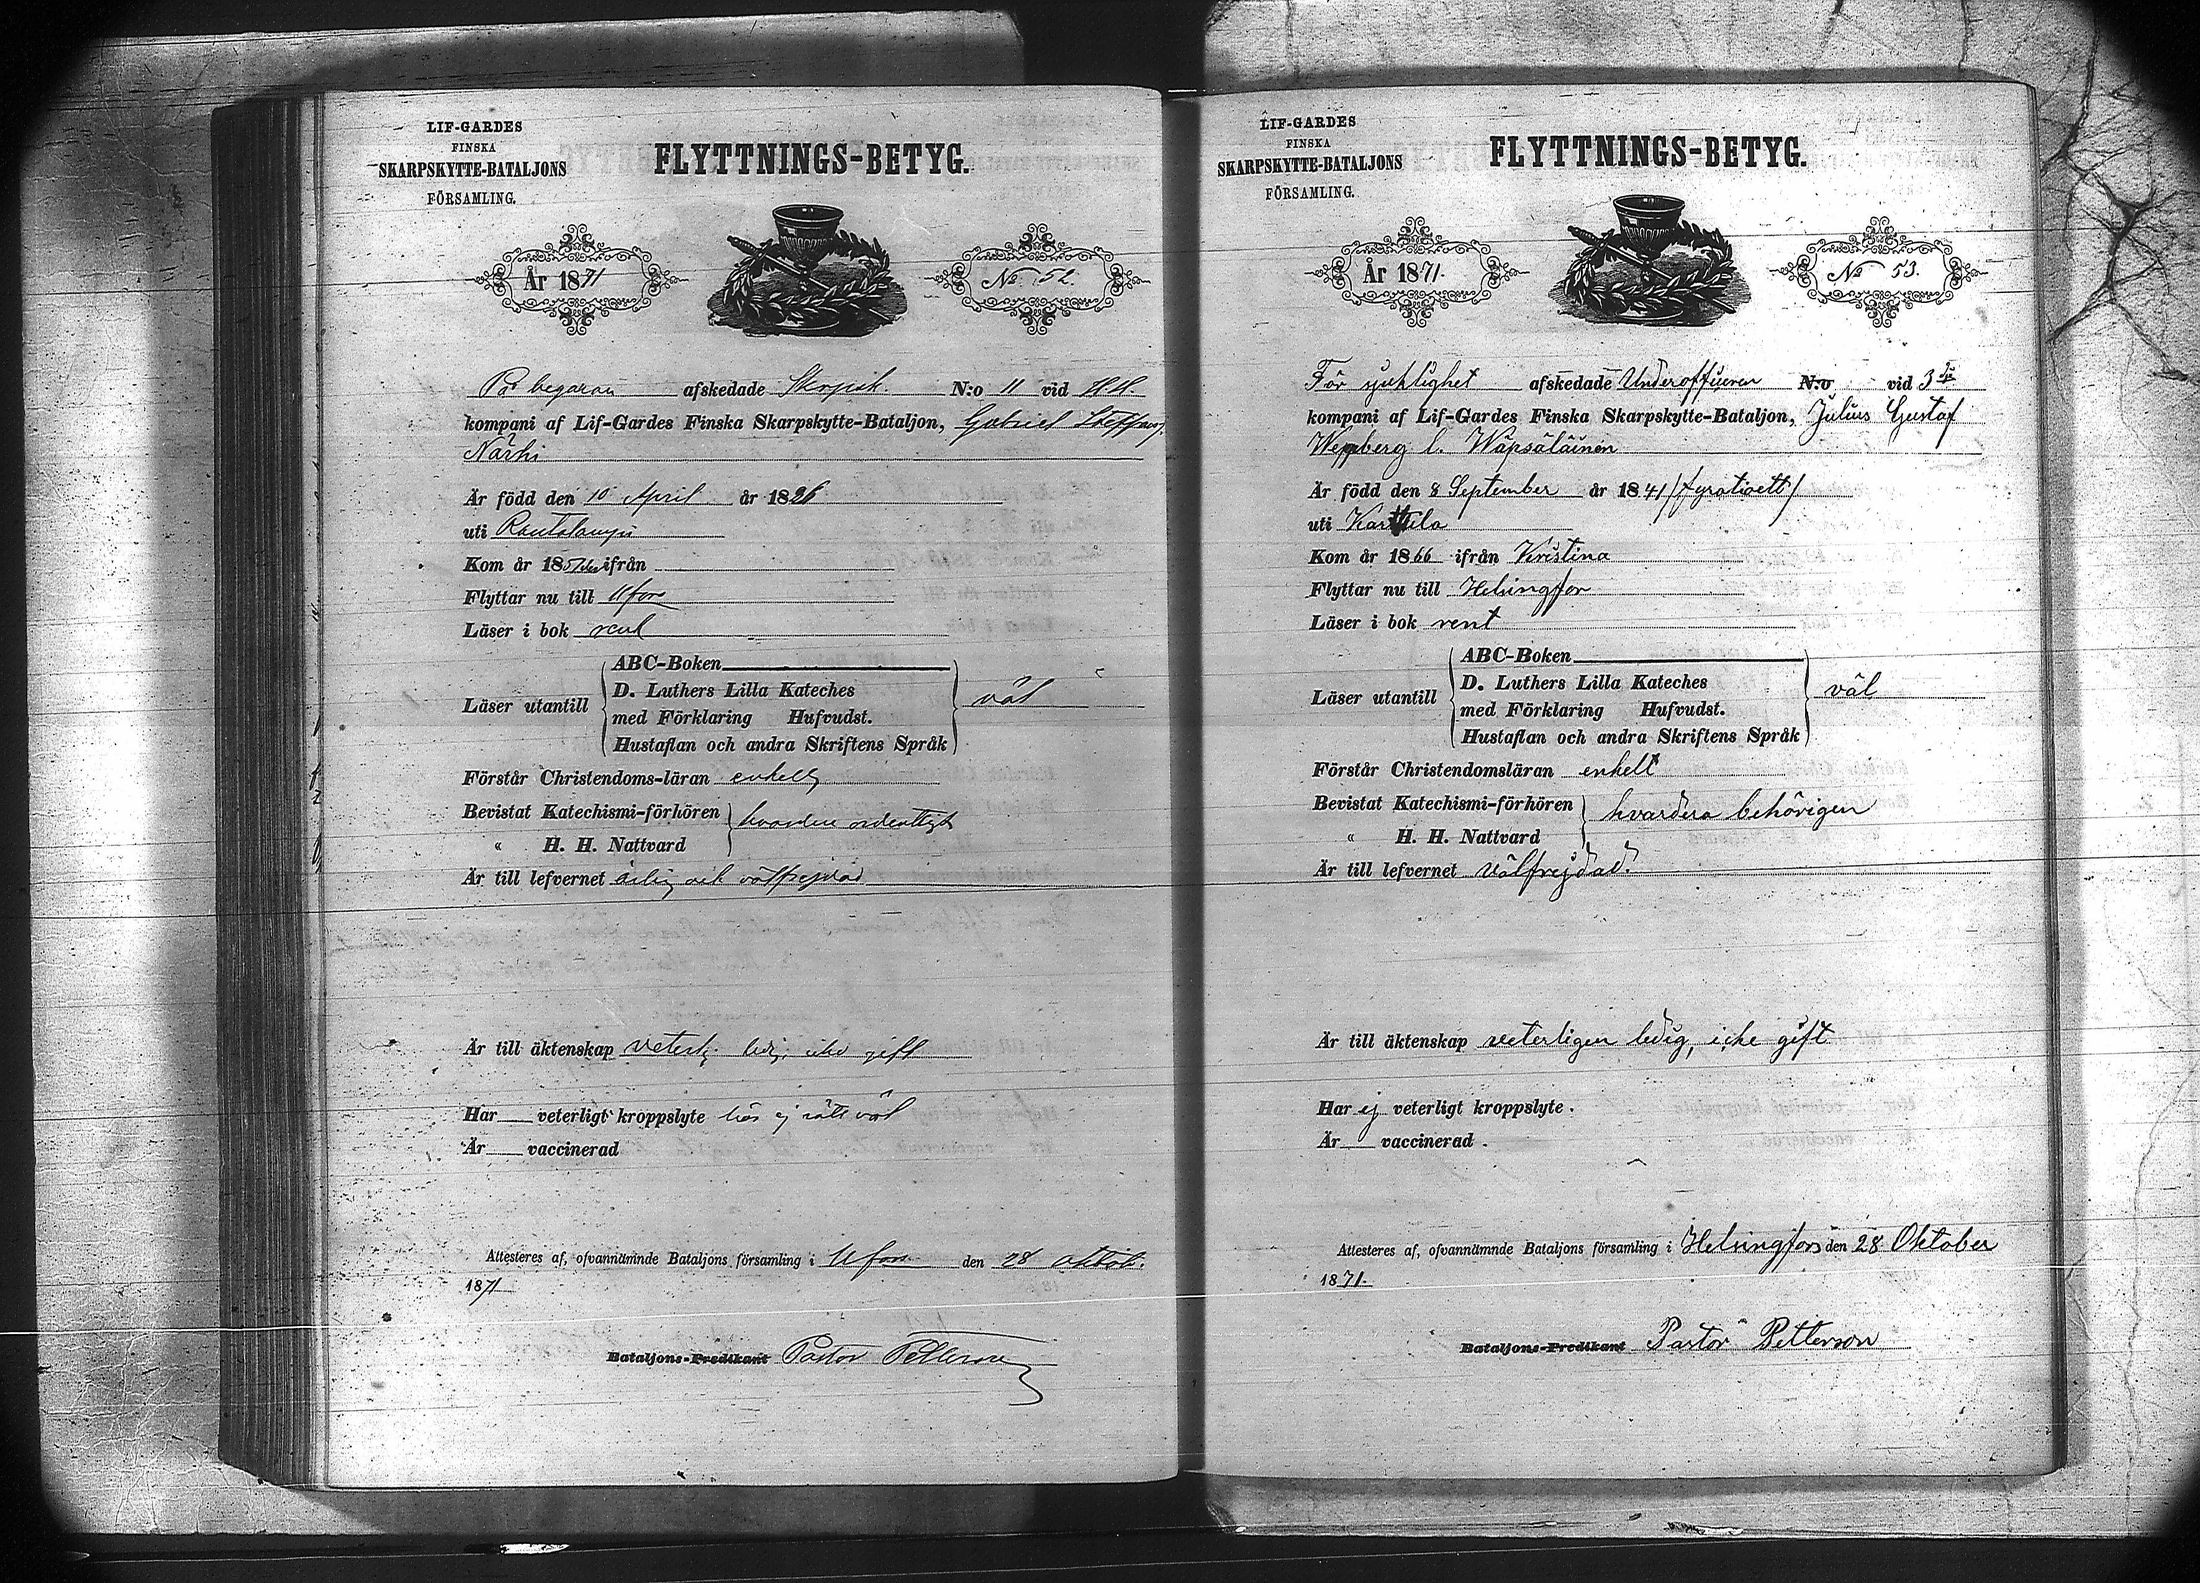 LIF-GARDES
FINSKA
SKARPSKYTTE-BATALJONS
FÖRSAMLING.
FLYTTNINGS-BETYG.
År 1871
No 52.
På begäran afskedade Skrpsk. N:o 11 vid
kompani af Lif-Gardes Finska Skarpskytte-Bataljon, Gabriel
Närhi
Är född den 10 April år 1826
uti Rautalampi
Kom år 18 ifrån
Flyttar nu till Hfors
Läser i bok rent
ABC-Boken
D. Luthers Lilla Kateches
Läser utantill väl
med Förklaring Hufvudst.
Hustaflan och andra Skriftens Språk
Förstår Christendoms-läran enkelt
Bevistat Katechismi-förhören hvardera ordentligt
" H. H. Nattvard
Är till lefvernet ärlig och välfrejdad
Är till äktenskap veterl. ledig, icke gift
Har veterligt kroppslyte hör ej rätt väl
Är vaccinerad
Attesteres af, ofvannämnde Bataljons församling i Hfors den 28 oktob.
1871
Bataljons-Predikant Pastor Petterson
LIF-GARDES
FINSKA
SKARPSKYTTE-BATALJONS
FÖRSAMLING.
FLYTTNINGS-BETYG.
År 1871.
No 53.
För sjuklighet afskedade Underofficeren N:o vid 3dje
kompani af Lif-Gardes Finska Skarpskytte-Bataljon, Julius Gustaf
Weppberg l. Wäpsäläinen
Är född den 8 September år 1841 /fyratioett/
uti Karttula
Kom år 1866 ifrån Kristina
Flyttar nu till Helsingfor
Läser i bok rent
ABC-Boken
D. Luthers Lilla Kateches
Läser utantill väl
med Förklaring Hufvudst.
Hustaflan och andra Skriftens Språk
Förstår Christendomsläran enkelt
Bevistat Katechismi-förhören hvardera behörigen
" H. H. Nattvard
Är till lefvernet välfrejdad.
Är till äktenskap veterligen ledig, icke gift
Har ej veterligt kroppslyte.
Är vaccinerad.
Attesteres af, ofvannämnde Bataljons församling i Helsingfors den 28 Oktober
1871.
Bataljons-Predikant Pastor Petterson